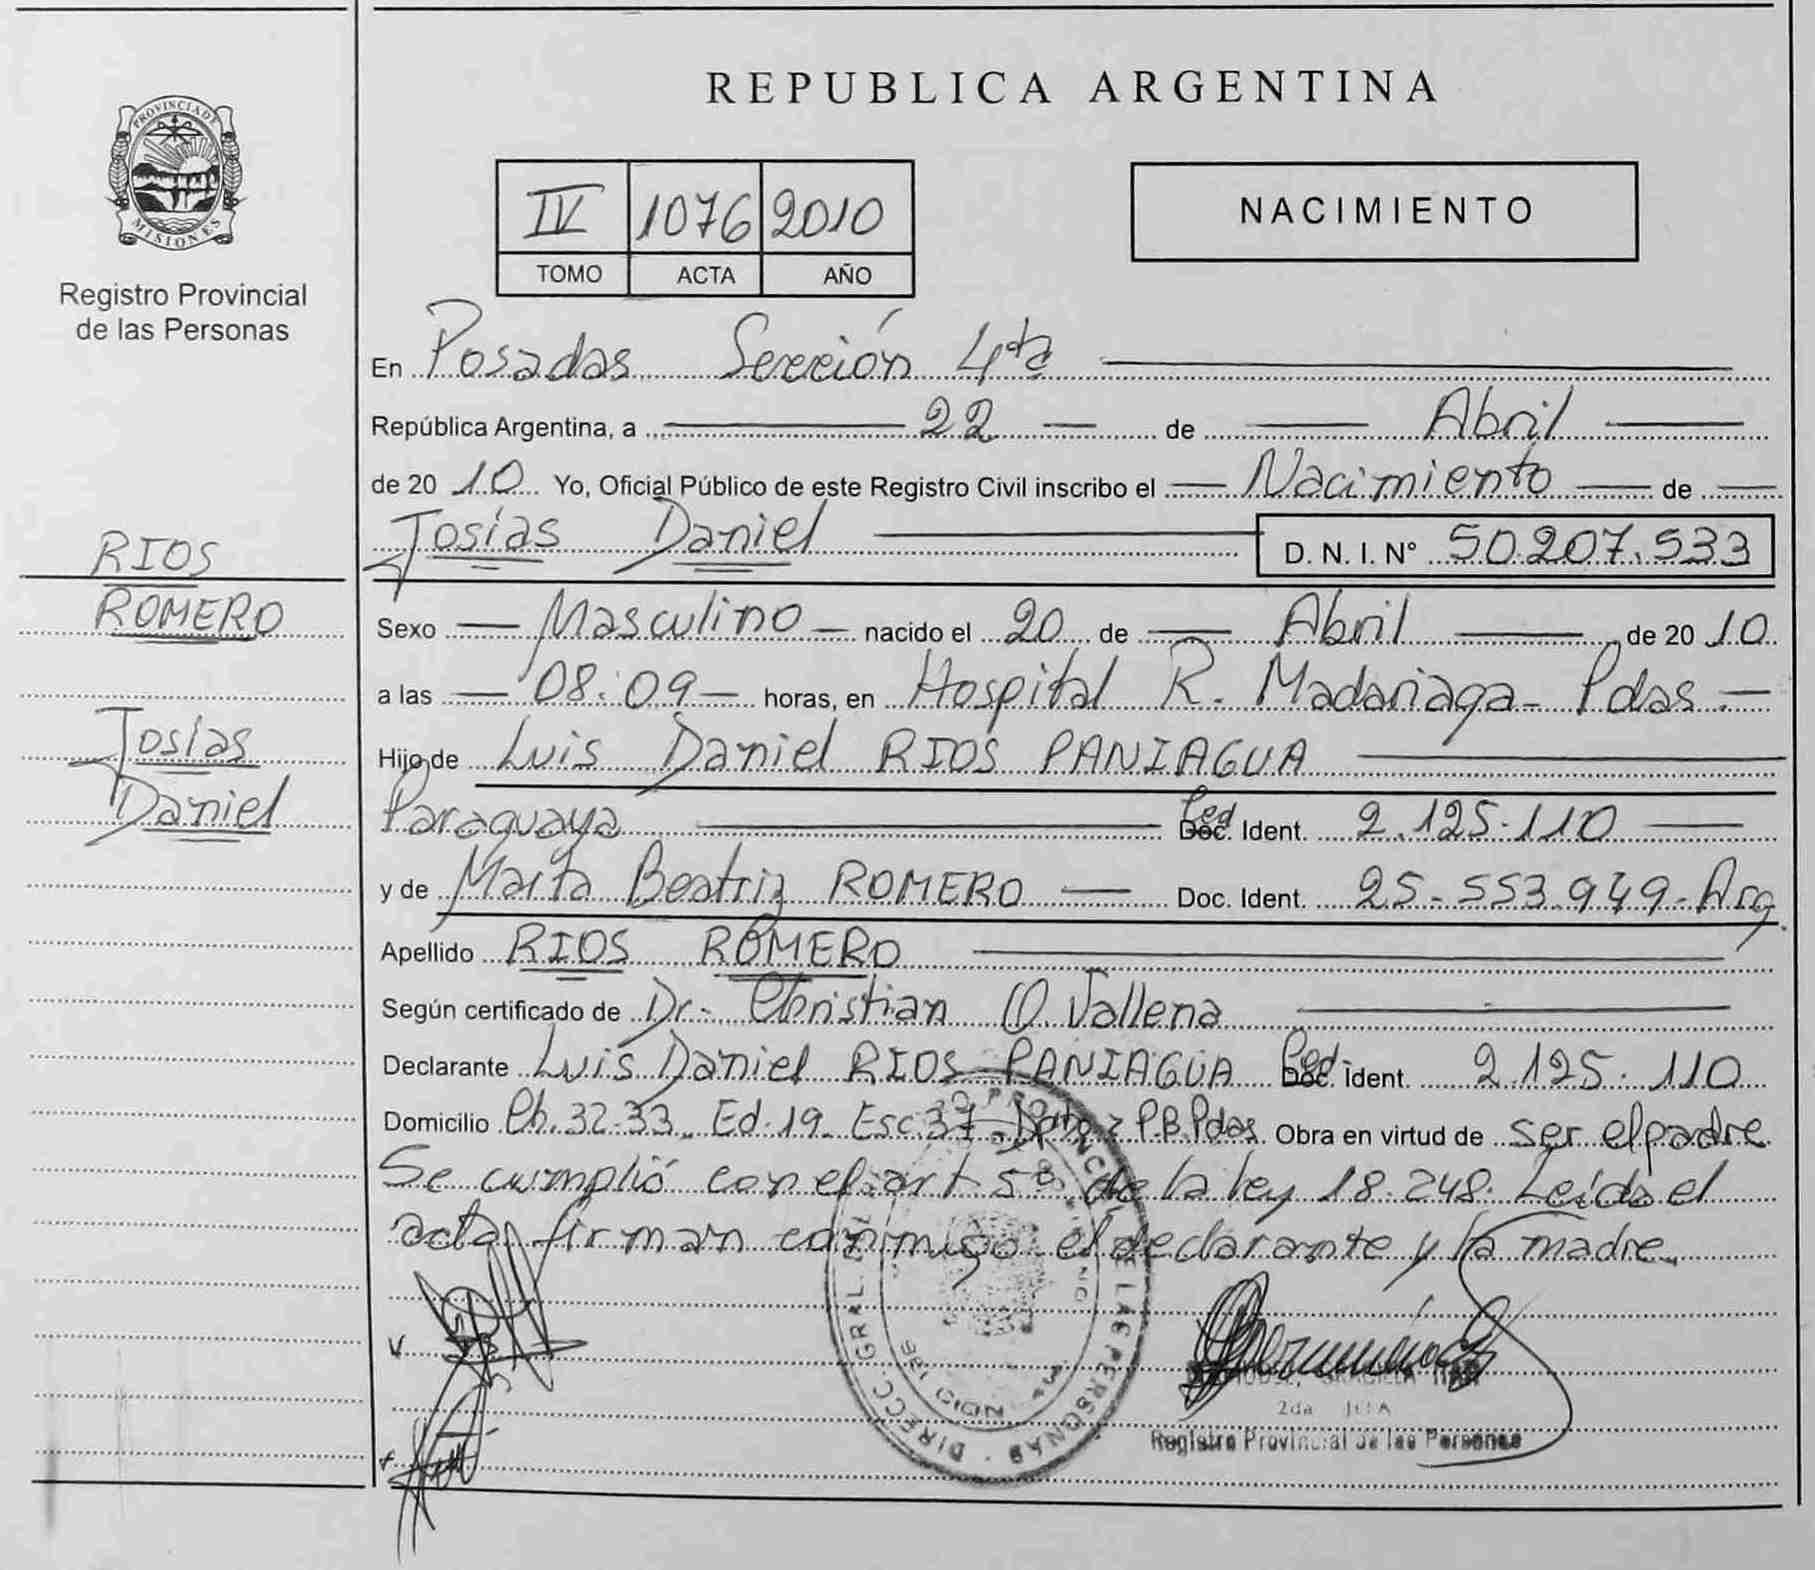 REPUBLICA ARGENTINA
PROVINCIA DE
MISIONES
Registro Provincial
de las Personas
IV 1076 2010
TOMO ACTA AÑO
NACIMIENTO
En Posadas Sección 4ta
República Argentina, a 22 de Abril
de 2010 Yo, Oficial Público de este Registro Civil inscribo el Nacimiento de
Josías Daniel D. N. I. N° 50.207.533
RIOS
ROMERO
Josías
Daniel
Sexo Masculino nacido el 20 de Abril de 2010
a las 08:09 horas, en Hospital R. Madariaga - Pdas.
Hijo de Luis Daniel RIOS PANIAGUA
Paraguaya Ced. Ident. 2.125.110
y de Marta Beatriz ROMERO Doc. Ident. 25.553.949 - Arg.
Apellido RIOS ROMERO
Según certificado de Dr. Christian O. Vallena
Declarante Luis Daniel RIOS PANIAGUA Ced. Ident. 2.125.110
Domicilio Ch. 32-33 Ed. 19 Esc. 37 P.B. Pdas. Obra en virtud de ser el padre
Se cumplió con el art 5º de la ley 18.248. Leída el
acta firman conmigo el declarante y la madre.
DIRECC. GRAL. DEL PROVINCIAL DE LAS PERSONAS
2da
Registro Provincial de las Personas